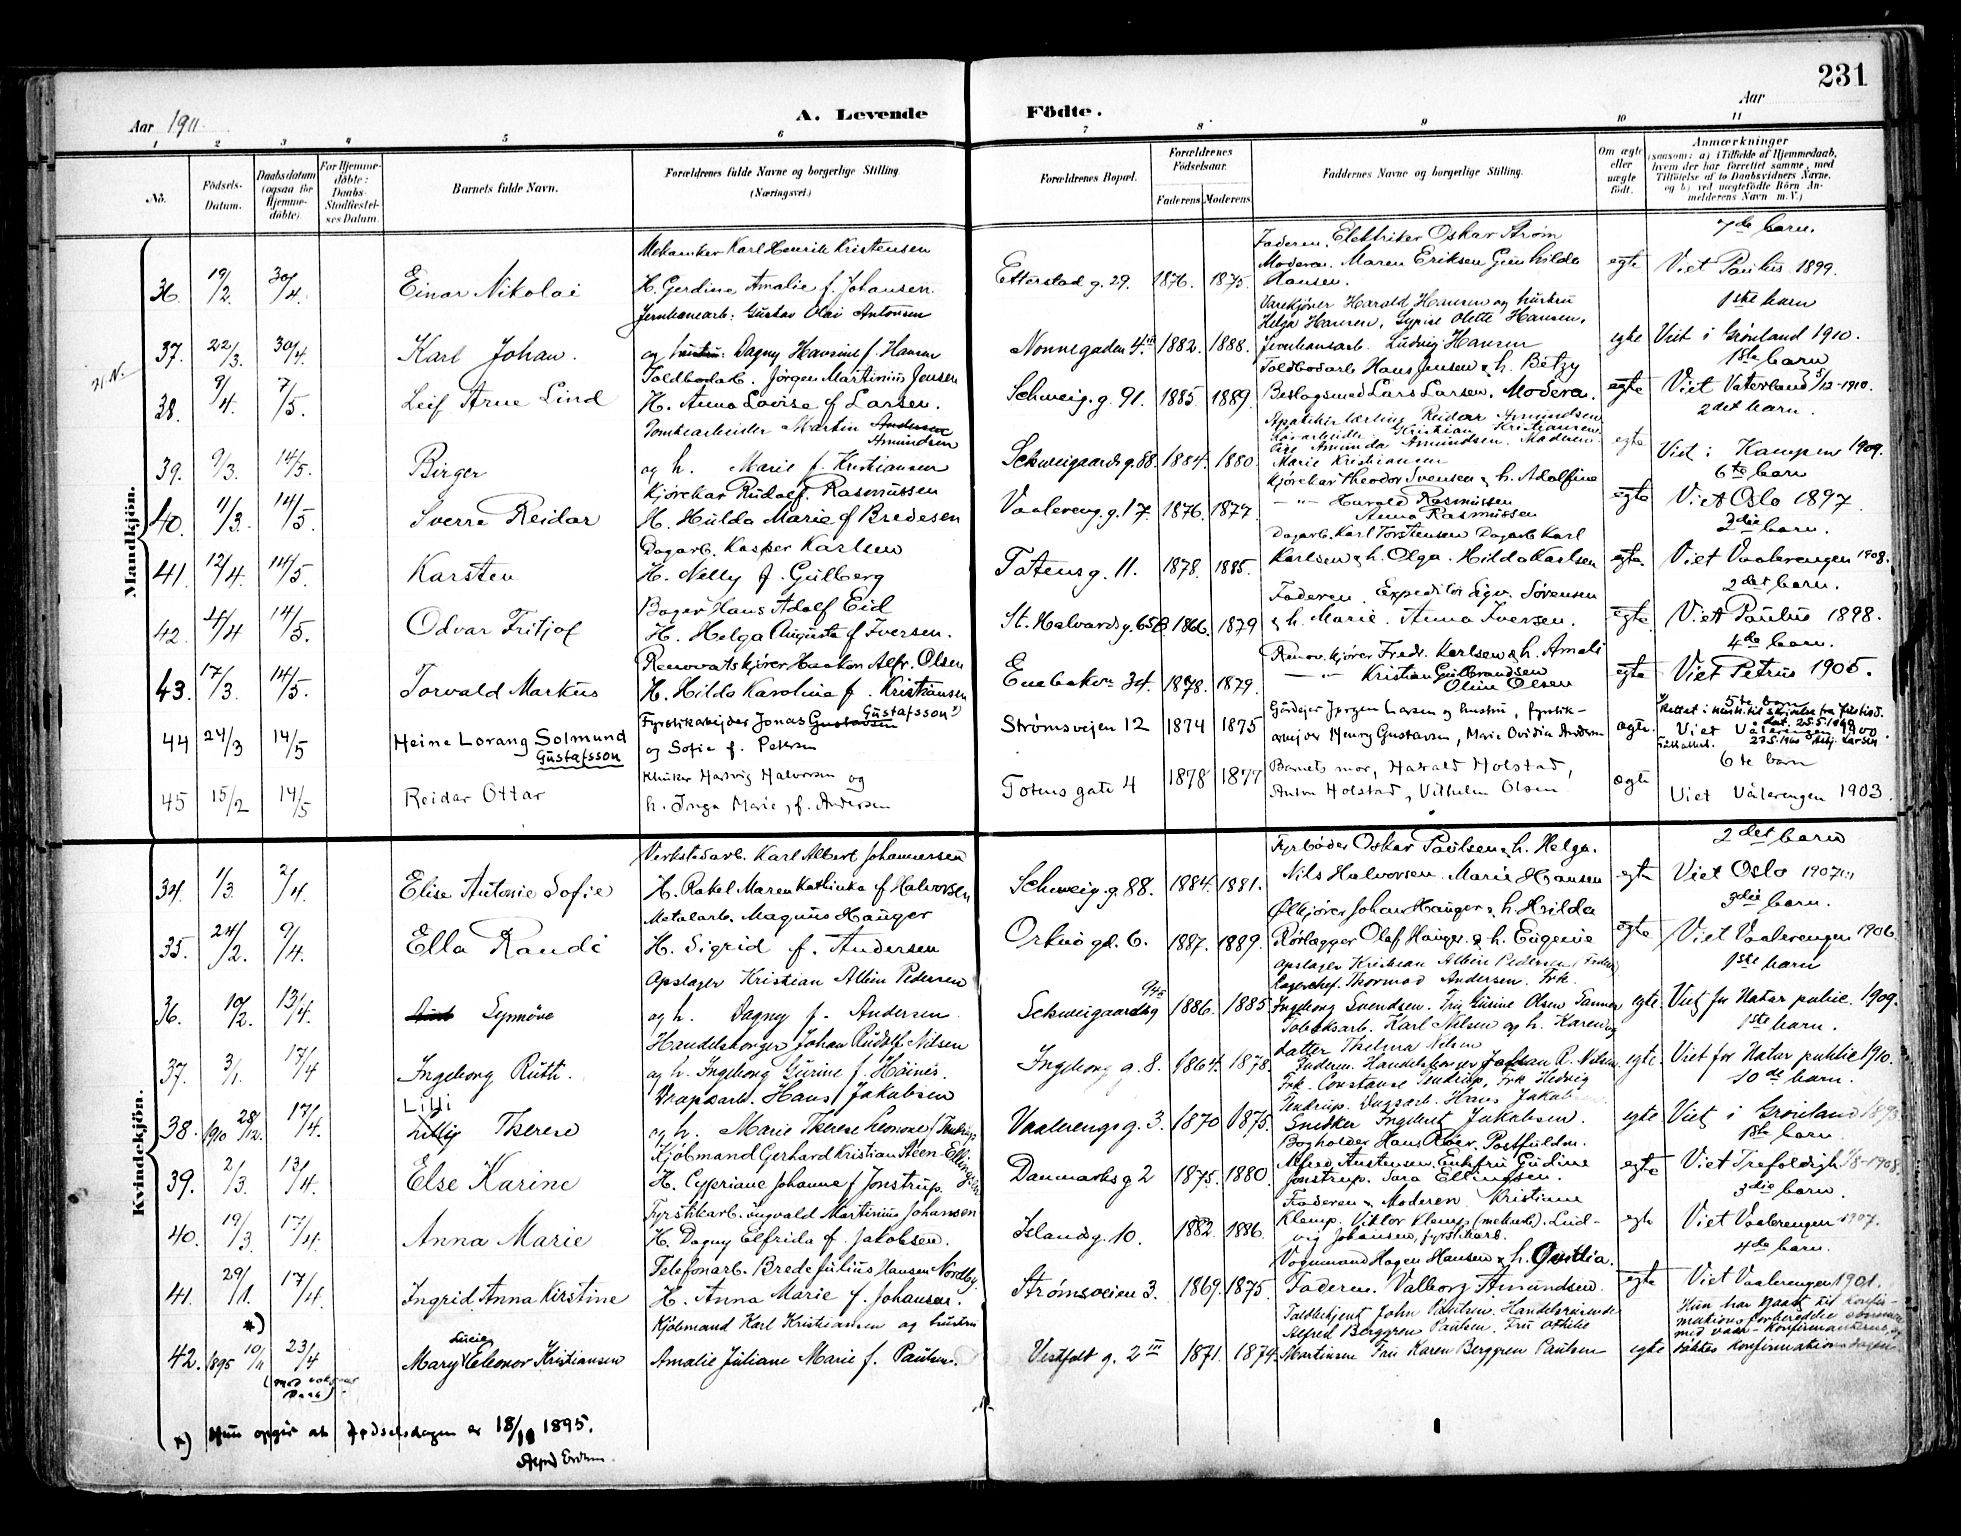 231
Aar 1911
A. Levende Födte.
Aar
1 2 3 4 5 6 7 8 9 10 11
No. Födsels-Datum. Daabsdatum (ogsaa for Hjemmedöbte). For Hjemmedöbte: Daabs-Stadfæstelses Datum. Barnets fulde Navn. Forældrenes fulde Navne og borgerlige Stilling. (Næringsvei.) Forældrenes Bopæl. Forældrenes Födselsaar. Faderens. Moderens. Faddernes Navne og borgerlige Stilling. Om ægte eller uægte födt. Anmærkninger (saasom: a) i Tilfælde af Hjemmedaab, hvem der har forrettet samme, med Tilföielse af to Daabsvidners Navne, og b) ved uægtefödte Börn Anmelderens Navn m. V.)
Mandkjön.
Mekaniker Karl Henrik Kristensen Faderen. Elektriker Oskar Strøm 7de barn.
36. 19/2 30/4 Einar Nikolai H. Gerdine Amalie f. Johansen. Etterstad g. 29. 1876. 1875. Moderen. Maren Eriksen Gunhilda Hansen. egte Viet Paulus 1899.
Jernbanearb. Gustav Olai Antonsen Varekjører Harald Hansen og hustru Helga Hansen, Olette Hansen, 1ste barn
37. 22/3 30/4 Karl Johan. og hustru: Dagny Hansine f. Hansen Nonnegaden 4. 1882. 1888. Jernbanearb. Ludvig Hansen egte Viet i Grønland 1910.
Toldbodarb. Jørgen Martinius Jensen Toldbodarb Hans Jensen & h. Betzy 1ste barn
38. 9/4 7/5. Leif Arne Lind H. Anna Lovise f Larsen. Schweig. g. 91. 1885 1889. Beslagsmed Lars Larsen. Modera. egte Viet Vaterland 5/12-1910.
Tomtearbeider Martin Andersen Amundsen Reidar Amundsen Kristian Kristiansen Amunda Amundsen. Moderen. 2det barn.
39. 9/3. 14/5. Birger og h. Marie f. Kristiansen Schweigaards g. 88. 1884. 1880. Marie Kristiansen egte Viet i Kampen 1909.
Kjørekar Rudolf. Rasmussen Kjørekar Theodor Svensen & h. Adolfine 6te barn
40. 11/3. 14/5. Sverre Reidar H. Hulda Marie f Bredesen Vaalereng. g. 17. 1876. 1877. —"— Harald Rasmussen Anna Rasmussen egte Viet Oslo 1897
Dagarb. Kasper Karlsen Dagarb. Karl Torstensen Dagarb Karl 3die barn.
41. 12/4. 14/5. Karsten H. Nelly f. Gulberg Totens g. 11. 1878. 1885. Karlsen & h. Olga. Hilda Karlsen egte. Viet Vaalerengen 1908.
Bager Hans Adolf Eid Faderen. Expeditør Sigv. Sørensen 2det barn.
42. 4/4 14/5. Odvar Fritjof H. Helga Augusta f Iversen. St. Halvards g. 65B 1866. 1879 & h. Marie. Anna Iversen. egte. Viet Paulus 1898.
Renovatskjører Haakon Alfr. Olsen Renov. kjører Fredr. Karlsen & h. Amali 4de barn.
43. 17/3. 14/5. Torvald Markus H. Hilda Karolina f. Kristiansen Enebakvn 34. 1878. 1879. —"— Kristian Gulbrandsen Oline Olsen egte Viet Petrus 1905.
Fyrstikarbejder Jonas Gustavsen Gustafsson Gårdejer Jørgen Larsen og hustru, fyrstik- 5te barn
44 24/3 14/5 Heine Lorang Solmund Gustafsson og Sofie f. Petersen Strømsvejen 12 1874 1875 arbejder Henry Gustavsen, Marie Ovidia Andersen ægte. Viet Vålerengen 1900.
Kusker Hartvig Halvorsen og Barnets mor, Harald Holstad, 6te barn
45 15/2 14/5 Reidar Ottar h. Inga Marie, f. Andersen Totens gate 4 1878 1877 Anton Holstad, Vilhelm Olsen ægte Viet Vålerengen 1903.
Kvindekjön.
Verkstedarb. Karl Albert Johannessen Fyrbøder Oskar Paulsen & h. Helga. 2det barn
34. 1/3. 2/4. Elise Antonie Sofie H. Rakel Maren Kathinka f Halvorsen Schweig. g. 88. 1884. 1881. Nils Halvorsen. Marie Hansen egte Viet Oslo 1907.
Metalarb. Magnus Hauger Ølkjører Johan Hauger & h. Hilda 3die barn.
35. 24/2. 9/4. Ella Randi H. Sigrid f. Andersen Orknø gd. 6. 1887. 1889. Rørlægger Olaf Hauger & h. Eugenie egte Viet Vaalerengen 1906.
Opslager Kristian Albin Pedersen Opslager Kristian Albin Pedersen Lagerchef. Thormod Andersen. Frk. 1ste barn
36. 10/2. 13/4. Synnøve og h. Dagny f. Andersen. Schweigaardsg 94a 1886. 1885 Ingeborg Svendsen. Fru Gurine Olsen egte. Viet for Notar public. 1909.
Handelsborger Johan Rudolf Nilsen Karl Nilsen og h. Karen og datter Thelma Nilsen 1ste barn.
37. 3/1. 17/4 Ingeborg Ruth. og h. Ingeborg Gurine f. Høines. Ingeborg g. 8. 1864. 1878. Faderen. Handelsborger Johan R. Nilsen egte. Viet for Notar public 1910.
Vragarb. Hans Jakobsen Frk. Constance Tendrup, Frk Hedvig Tendrup. Hans Jakobsen 10de barn.
38. 1910 28/12. 17/4. Lilli Lilly Therese og h. Marie Therese Leonore f Tendrup Vaalerengs g. 3. 1870 1875. Snedker Ingebret Jakobsen. egte Viet i Grønland 1893.
Kjøbmand Gerhard Kristian Steen-Ellingsen Bogholder Hans Postfuldm. 1ste barn.
39. 2/3. 13/4. Else Karine H. Cypriane Johanne f Jonstrup. Danmarks g 2 1875. 1880. Alfred Austensen. Enkefru Gudine Jonstrup. Sara Ellingsen. egte Viet Trefoldigh 1/8-1908.
Fyrstikarb. Ingvald Martinius Johansen Faderen & Moderen. Kristiane 3die barn.
40. 19/3 17/4. Anna Marie H. Dagny Elfrida f. Jakobsen. Islands g. 10. 1882. 1886. Klemp. Viktor Klemp (metalarb). Ludvig Johansen, fyrstikarb. egte Viet Vaalerengen 1907.
Telefonarb. Brede Julius Hansen Nordby Vognmand Hagen Hansen & h. 4de barn.
41. 29/1. 17/4. Ingrid Anna Kirstine H. Anna Marie f. Johansen. Strømsveien 3. 1869. 1875. Faderen. Valborg Amundsen. egte Viet Vaalerengen 1901.
Kjøbmand Karl Kristiansen og hustru Toldbetjent John Paulsen. Handelsreisende Alfred Berggren Paulsen. Fru Othilie Hun har gaaet til konfirmationsforberedelse sammen med vaar-konfirmanterne, og
42. 1895 10/11 *) 23/4 (med voksnes Daab). Mary Lucie Eleonor Kristiansen Amalie Juliane Marie f. Paulsen. Vestfold g. 2 III 1871. 1874. Martinsen Fru Karen Berggren Paulsen egte døbtes konfirmationsdagen
*) Hun opgir at fødselsdagen er 18/11 1895.